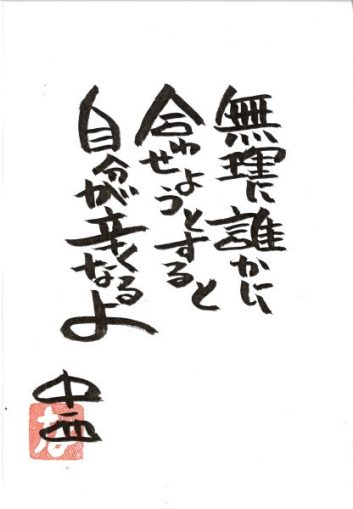 無理に誰かに
合わせようとすると
自分が辛くなるよ
中西